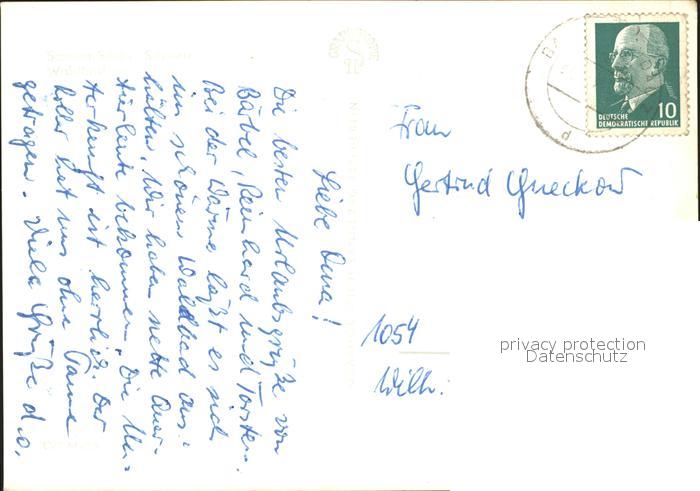 Liebe Oma!
Die besten Urlaubsgrüße von
Bärbel, Reinhard und Torsten.
Bei der Wärme läßt es sich
im schönen Waldbad aus-
halten. Wir haben nette Quar-
tierleute bekommen. Die Un-
terkunft ist herrlich. Der
Koller hat uns ohne Panne
getragen. Viele Grüße d.o.
Frau
Gertrud Gneckow
1054
Wilh:
DEUTSCHE
DEMOKRATISCHE REPUBLIK
10
BA
d
privacy protection
Datenschutz